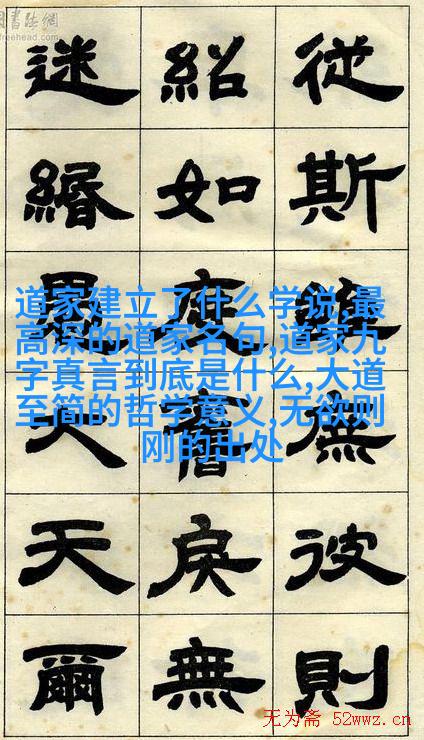 書法網
freehead.com
從斯彼則
紹如戾無
迷緡大天爾
道家建立了什么学说,最
高深的道家名句,道家九
字真言到底是什么,大道
至简的哲学意义,无欲则
刚的出处
无为斋 52wwz.cn